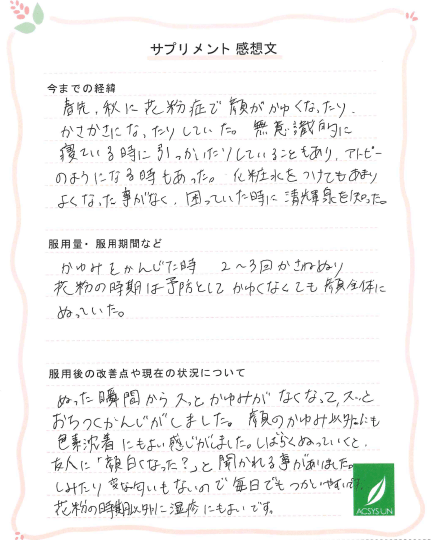 サプリメント 感想文
今までの経緯
春先、秋に花粉症で顔がかゆくなったり、
かさかさになったりしていた。無意識的に
寝ている時に引っかいたりしていることもあり、アトピー
のようになる時もあった。化粧水をつけてもあまり
よくなった事がなく、困っていた時に清輝泉を知った。
服用量・服用期間など
かゆみをかんじた時 2~3回かさねぬり
花粉の時期は予防としてかゆくなくても顔全体に
ぬっていた。
服用後の改善点や現在の状況について
ぬった瞬間からスッとかゆみがなくなって、スッと
おちつくかんじがしました。顔のかゆみ以外にも
色素沈着にもよい感じがしました。しばらくぬっていくと、
友人に「顔白くなった?」と聞かれる事がありました。
しみたり変な匂いもないので毎日でもつかいやすいです。
花粉の時期以外に湿疹にもよいです。
ACSYSUN